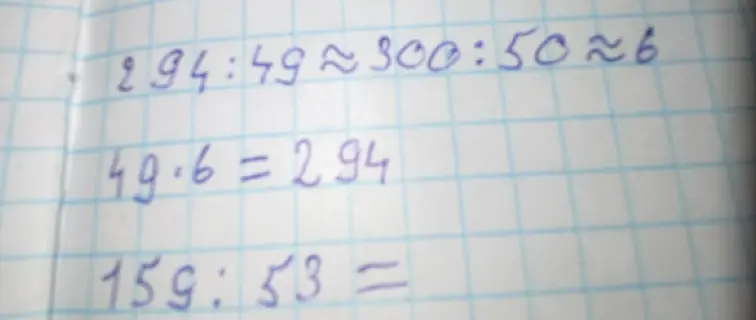 294:49≈300:50≈6
49·6=294
159:53=